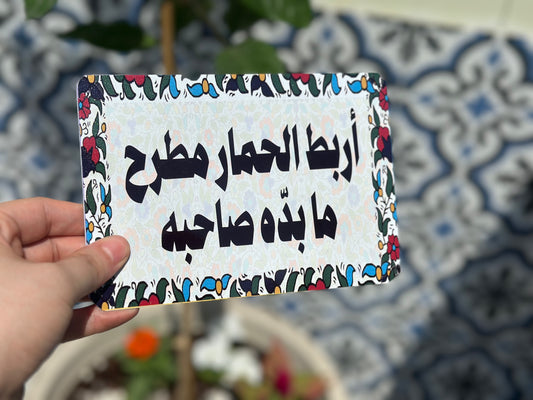 أربط الحمار مطرح
ما بدّه صاحبه